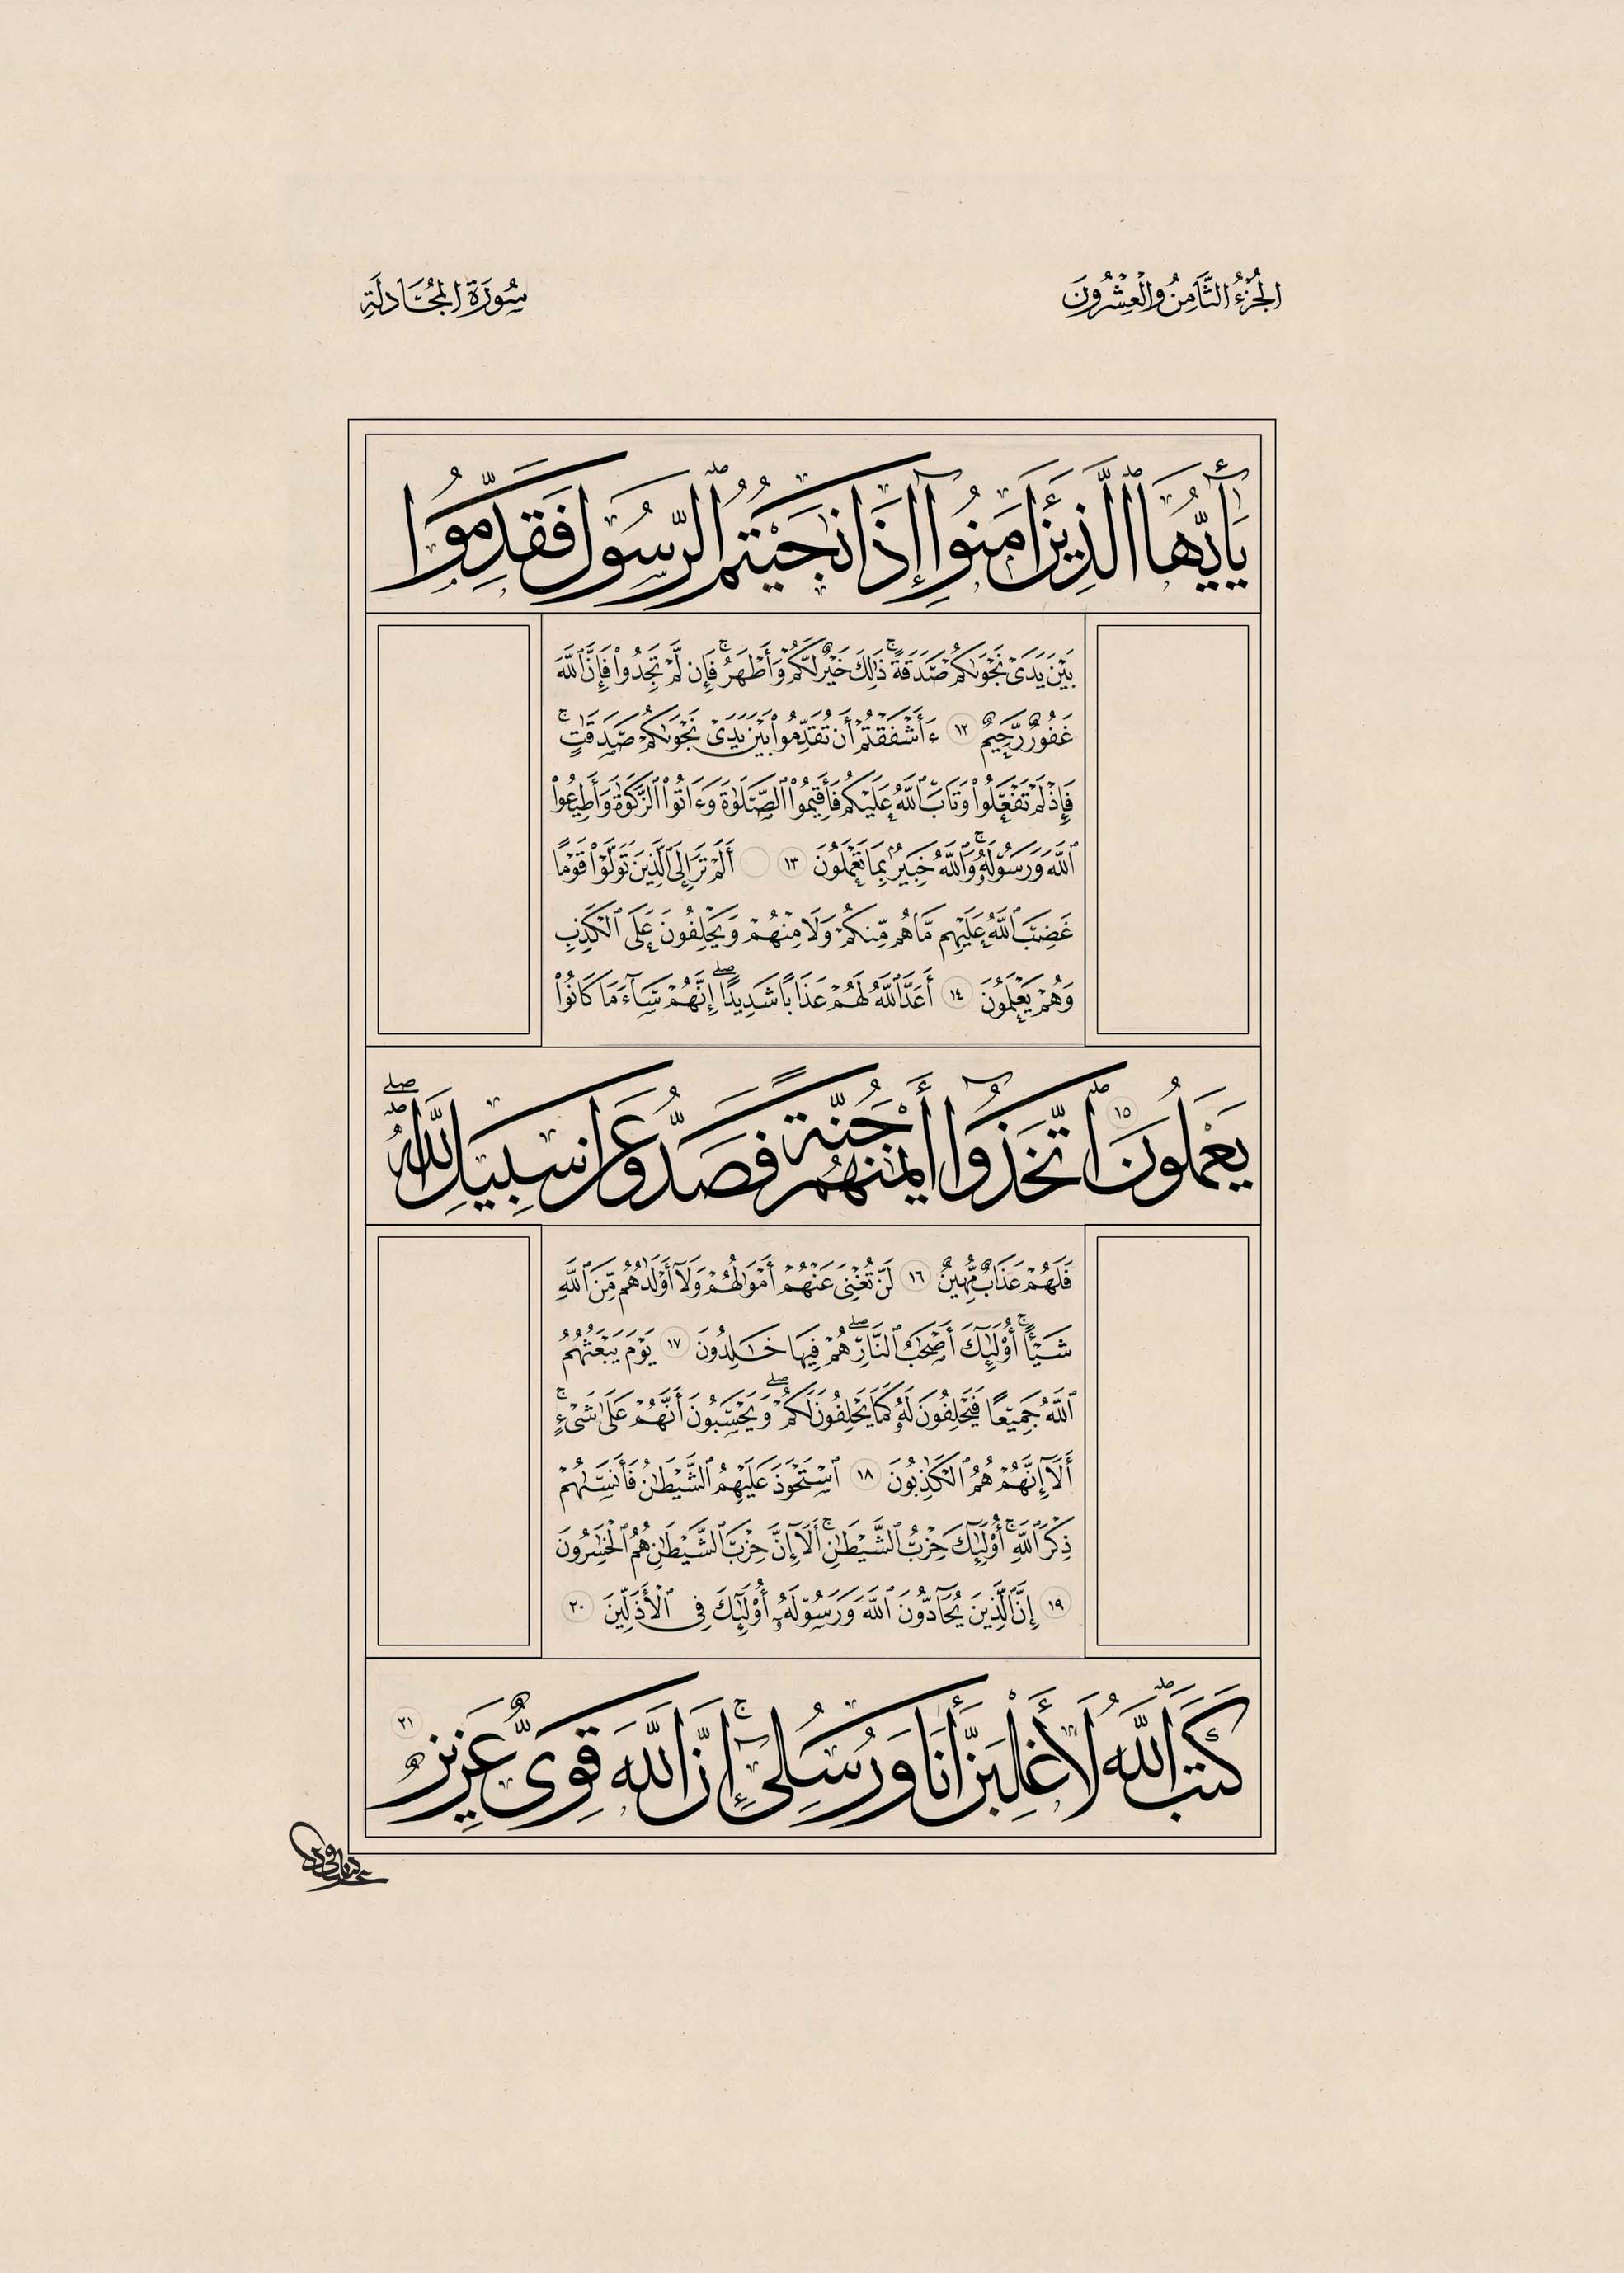 الجُزْءُ الثَّامِنُ وَالْعِشْرُونَ
سُورَةُ المُجَادلَةِ
يَٰٓأَيُّهَا ٱلَّذِينَ ءَامَنُوٓا۟ إِذَا نَٰجَيْتُمُ ٱلرَّسُولَ فَقَدِّمُوا۟
بَيْنَ يَدَىْ نَجْوَىٰكُمْ صَدَقَةً ۚ ذَٰلِكَ خَيْرٌ لَّكُمْ وَأَطْهَرُ ۚ فَإِن لَّمْ تَجِدُوا۟ فَإِنَّ ٱللَّهَ
غَفُورٌ رَّحِيمٌ ١٢ ءَأَشْفَقْتُمْ أَن تُقَدِّمُوا۟ بَيْنَ يَدَىْ نَجْوَىٰكُمْ صَدَقَٰتٍ ۚ
فَإِذْ لَمْ تَفْعَلُوا۟ وَتَابَ ٱللَّهُ عَلَيْكُمْ فَأَقِيمُوا۟ ٱلصَّلَوٰةَ وَءَاتُوا۟ ٱلزَّكَوٰةَ وَأَطِيعُوا۟
ٱللَّهَ وَرَسُولَهُۥ ۚ وَٱللَّهُ خَبِيرٌۢ بِمَا تَعْمَلُونَ ١٣ أَلَمْ تَرَ إِلَى ٱلَّذِينَ تَوَلَّوْا۟ قَوْمًا
غَضِبَ ٱللَّهُ عَلَيْهِم مَّا هُم مِّنكُمْ وَلَا مِنْهُمْ وَيَحْلِفُونَ عَلَى ٱلْكَذِبِ
وَهُمْ يَعْلَمُونَ ١٤ أَعَدَّ ٱللَّهُ لَهُمْ عَذَابًا شَدِيدًا ۖ إِنَّهُمْ سَآءَ مَا كَانُوا۟
يَعْمَلُونَ ١٥ ٱتَّخَذُوٓا۟ أَيْمَٰنَهُمْ جُنَّةً فَصَدُّوا۟ عَن سَبِيلِ ٱللَّهِ
فَلَهُمْ عَذَابٌ مُّهِينٌ ١٦ لَّن تُغْنِىَ عَنْهُمْ أَمْوَٰلُهُمْ وَلَآ أَوْلَٰدُهُم مِّنَ ٱللَّهِ
شَيْـًٔا ۚ أُو۟لَٰٓئِكَ أَصْحَٰبُ ٱلنَّارِ ۖ هُمْ فِيهَا خَٰلِدُونَ ١٧ يَوْمَ يَبْعَثُهُمُ
ٱللَّهُ جَمِيعًا فَيَحْلِفُونَ لَهُۥ كَمَا يَحْلِفُونَ لَكُمْ ۖ وَيَحْسَبُونَ أَنَّهُمْ عَلَىٰ شَىْءٍ ۚ
أَلَآ إِنَّهُمْ هُمُ ٱلْكَٰذِبُونَ ١٨ ٱسْتَحْوَذَ عَلَيْهِمُ ٱلشَّيْطَٰنُ فَأَنسَىٰهُمْ
ذِكْرَ ٱللَّهِ ۚ أُو۟لَٰٓئِكَ حِزْبُ ٱلشَّيْطَٰنِ ۚ أَلَآ إِنَّ حِزْبَ ٱلشَّيْطَٰنِ هُمُ ٱلْخَٰسِرُونَ
١٩ إِنَّ ٱلَّذِينَ يُحَآدُّونَ ٱللَّهَ وَرَسُولَهُۥٓ أُو۟لَٰٓئِكَ فِى ٱلْأَذَلِّينَ ٢٠
كَتَبَ ٱللَّهُ لَأَغْلِبَنَّ أَنَا۠ وَرُسُلِىٓ ۚ إِنَّ ٱللَّهَ قَوِىٌّ عَزِيزٌ ٢١